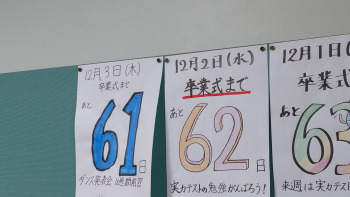 12月3日(木)
卒業式まで
あと
61
日
ダンス発表会 1週間前
12月2日(水)
卒業式まで
あと
62
日
実力テストの勉強がんばろう!
12月1日(
卒業式
あと
63
来週は実力テス